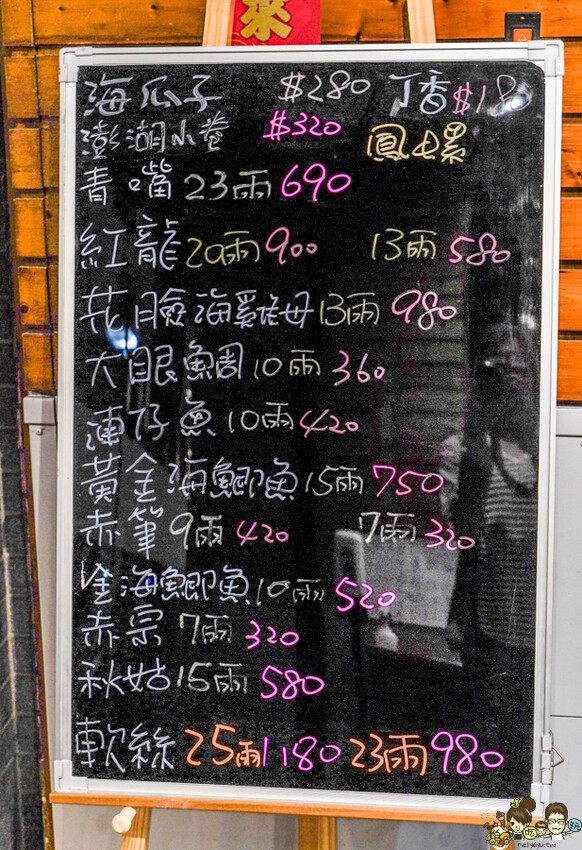 菜
海瓜子 $280 丁香 $180
澎湖小卷 $320 鳳螺
青嘴 23兩 690
紅龍 20兩 900 13兩 580
花臉海雞母 13兩 980
大眼鯛 10兩 360
連仔魚 10兩 420
黃金海鯽魚 15兩 750
赤筆 9兩 420 7兩 320
金海鯽魚 10兩 520
赤宗 7兩 320
秋姑 15兩 580
軟絲 25兩 1180 23兩 980
helloju.tw